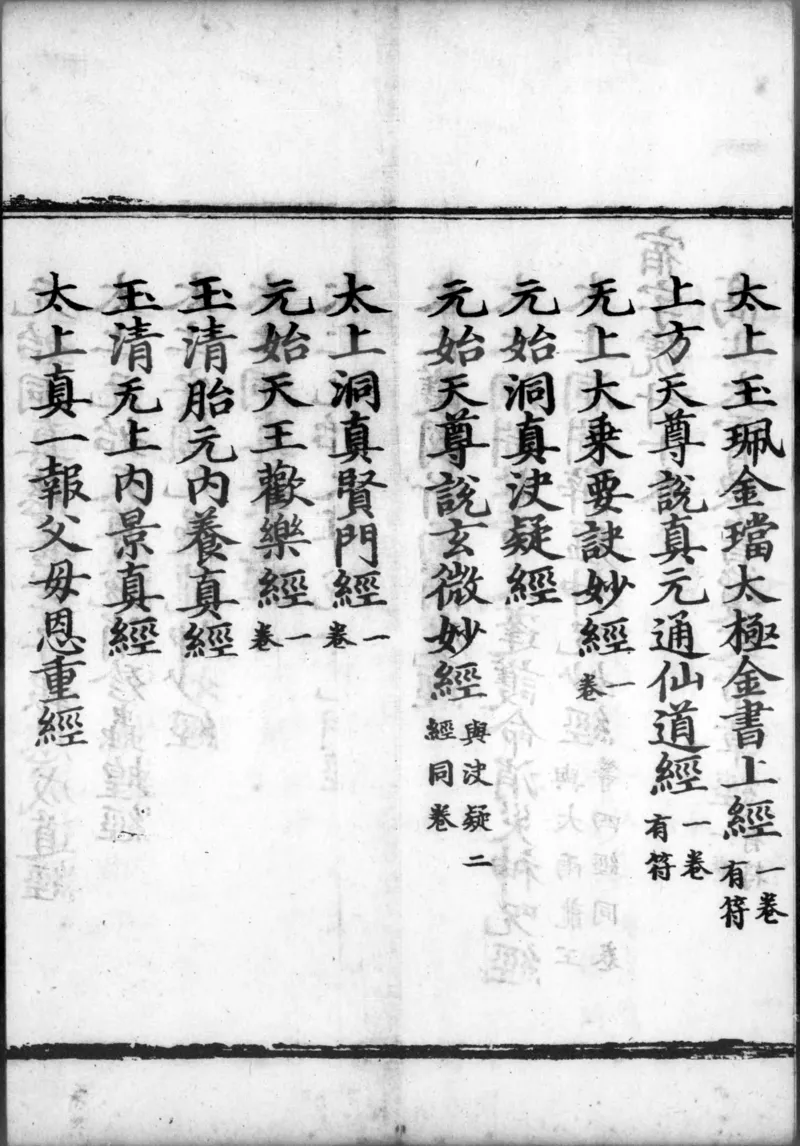 太上玉珮金璫太極金書上經一卷有符
上方天尊說真元通仙道經一卷有符
无上大乘要訣妙經一卷
元始洞真決疑經
元始天尊說玄微妙經與決疑二經同卷
太上洞真賢門經一卷
元始天王歡樂經一卷
玉清胎元內養真經
玉清无上內景真經
太上真一報父母恩重經